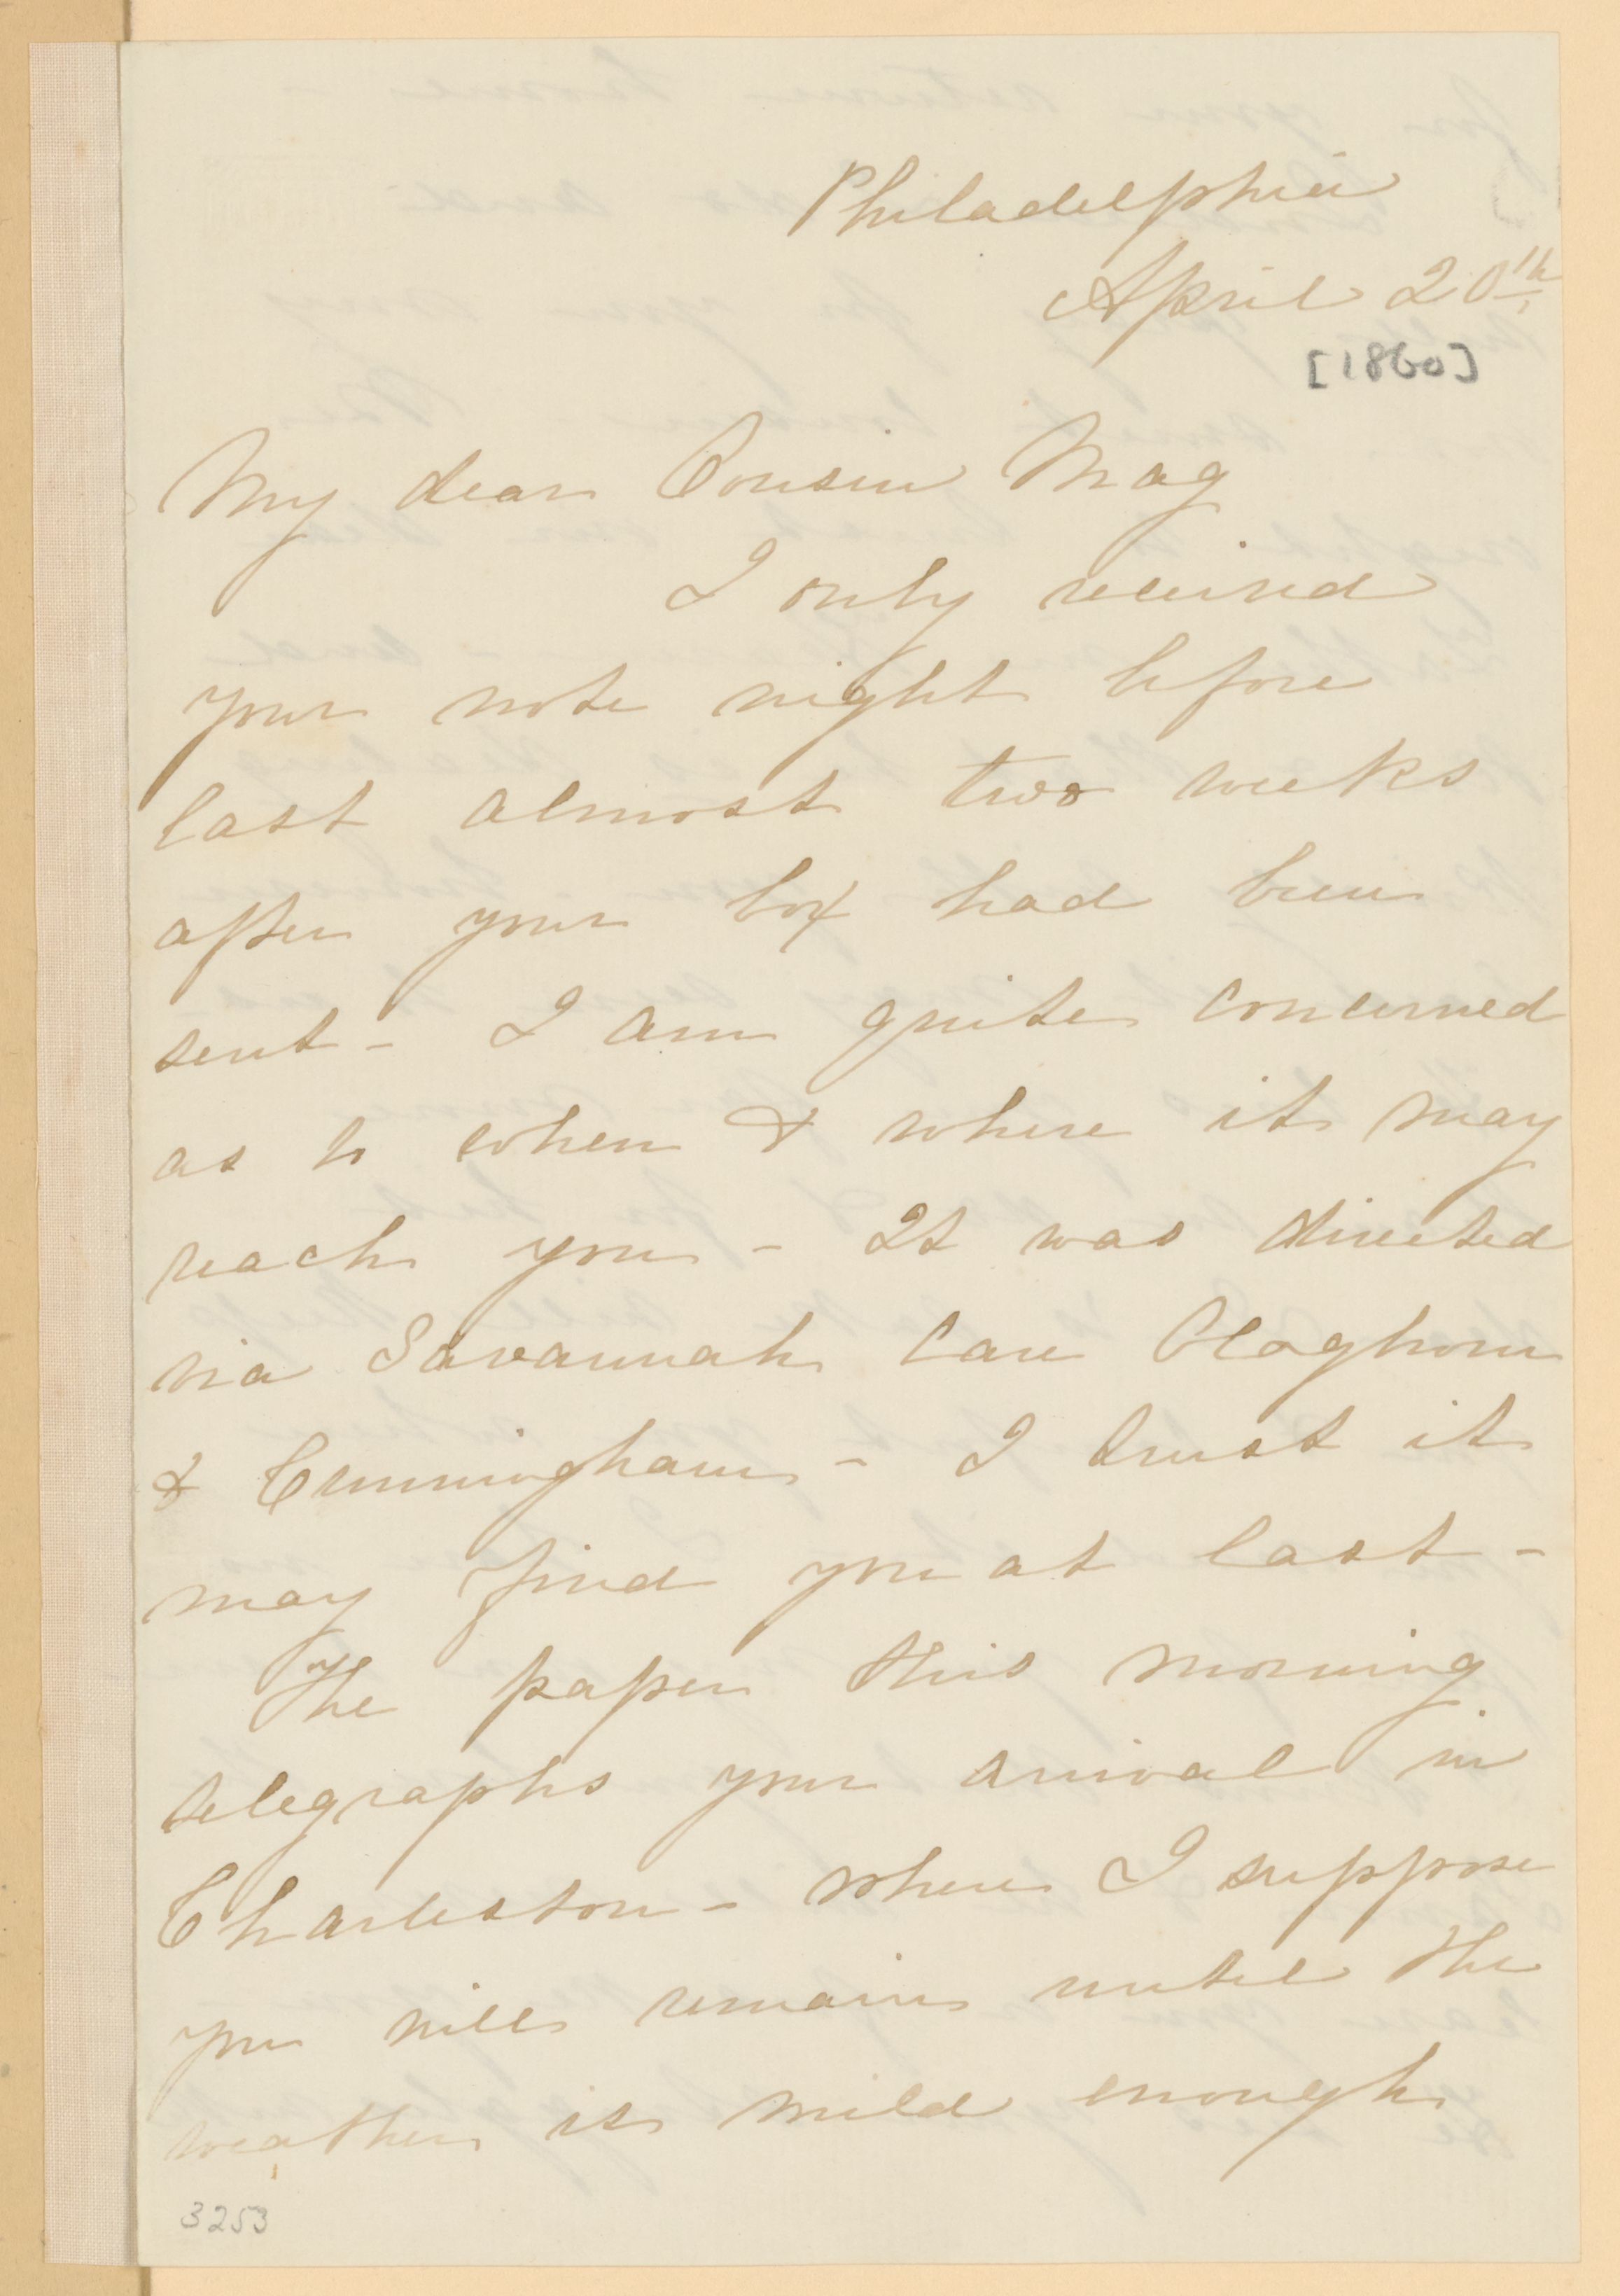 Philadelphia
April 20th
[1860]
My dear Cousin Mag
I only received
your note night before
last almost two weeks
after your box had been
sent - I am quite concerned
as to when & where it may
reach you - It was directed
via Savannah Care Claghorn
& Cunningham - I trust it
may find you at last -
The paper this morning
telegraphs your arrival in
Charleston - where I suppose
you will remain until the
weather is mild enough
3253